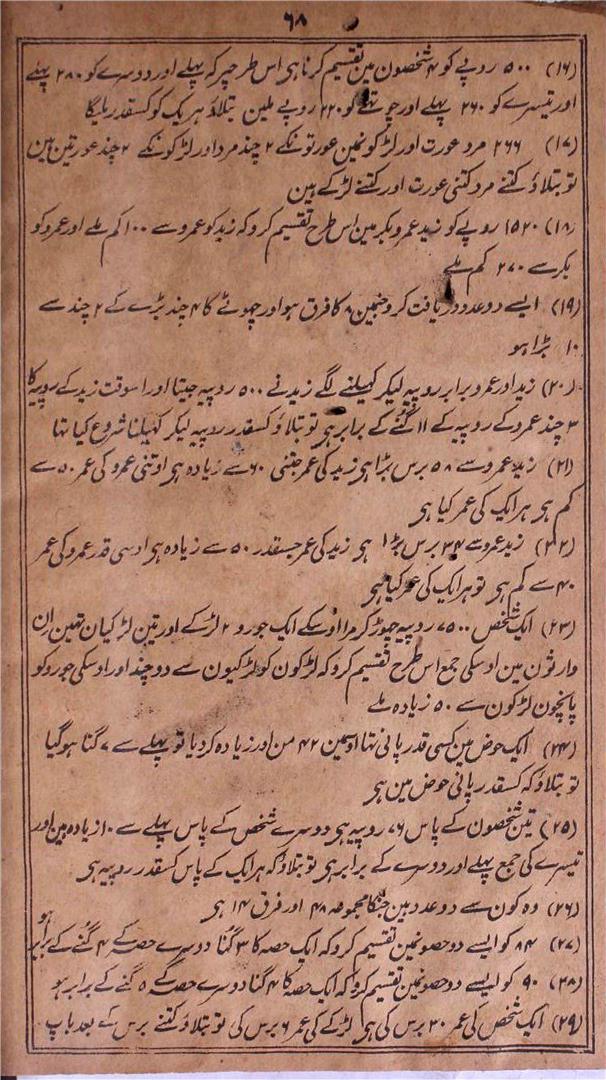 ۶۸
(۱۶) ۵۰۰ روپے کو ۴ شخصون مین تقسیم کرنا ہی اس طرحپر کہ پہلے اور دوسرے کو ۲۸۰ پہلے
اور تیسرے کو ۲۶۰ پہلے اور چوتھے کو ۲۲۰ روپے ملین بتلاؤ ہر یک کو کسقدر ملیگا
(۱۷) ۲۶۶ مرد عورت اور لڑکونمین عورتونکے ۲ چند مرد اور لڑکونکے ۲ چند عورتین ہین
تو بتلاؤ کتنے مرد کتنی عورت اور کتنے لڑکے ہین
(۱۸) ۱۵۲۰ روپے کو زید عمرو بکر مین اس طرح تقسیم کرو کہ زید کو عمرو سے ۱۰۰ کم ملے اور عمرو کو
بکر سے ۲۷۰ کم ملے
(۱۹) ایسے دو عدد دریافت کرو جنمین ۸ کا فرق ہو اور چھوٹے کا ۴ چند بڑے کے ۲ چند سے
۱۰ بڑا ہو
(۲۰) زید اور عمرو برابر روپیہ لیکر کھیلنے لگے زید نے ۵۰۰ روپیہ جیتا اور اسوقت زید کے روپیہ کا
۳ چند عمرو کے روپیہ کے ۱۱ گنے کے برابر ہی تو بتلاؤ کسقدر روپیہ لیکر کھیلنا شروع کیا تہا
(۲۱) زید عمرو سے ۵۸ برس بڑا ہی زید کی عمر جتنی ۶۰ سے زیادہ ہی اوتنی عمرو کی عمر ۵۰ سے
کم ہی ہر ایک کی عمر کیا ہی
(۲۲) زید عمرو سے ۳۴ برس بڑا ہی زید کی عمر جسقدر ۵۰ سے زیادہ ہی اوسی قدر عمرو کی عمر
۴۰ سے کم ہی تو ہر ایک کی عمر کیا ہی
(۲۳) ایک شخص ۷۵۰۰ روپیہ چھوڑ کر مرا اوسکے ایک جورو ۲ لڑکے اور تین لڑکیان تہین ان
وارثون مین اوسکی جمع اس طرح تقسیم کرو کہ لڑکون کو لڑکیون سے دو چند اور اوسکی جورو کو
پانچون لڑکون سے ۵۰ زیادہ ملے
(۲۴) ایک حوض مین کسی قدر پانی تہا اوسمین ۴۲ من اور زیادہ کر دیا تو پہلے سے ۷ گنا ہوگیا
تو بتلاؤ کہ کسقدر پانی حوض مین ہی
(۲۵) تین شخصون کے پاس ۷۶ روپیہ ہی دوسرے شخص کے پاس پہلے سے ۱۰ زیادہ ہین اور
تیسرے کی جمع پہلے اور دوسرے کے برابر ہی تو بتلاؤ کہ ہر ایک کے پاس کسقدر روپیہ ہی
(۲۶) وہ کون سے دو عدد ہین جنکا مجموعہ ۴۸ اور فرق ۱۴ ہی
(۲۷) ۸۴ کو ایسے دو حصونمین تقسیم کرو کہ ایک حصہ کا ۳ گنا دوسرے حصہ کے ۴ گنے کے برابر ہو
(۲۸) ۹۰ کو ایسے دو حصونمین تقسیم کرو کہ ایک حصہ کا ۴ گنا دوسرے حصہ کے ۵ گنے کے برابر ہو
(۲۹) ایک شخص کی عمر ۳۰ برس کی ہی لڑکے کی عمر ۶ برس کی تو بتلاؤ کتنے برس کے بعد باپ